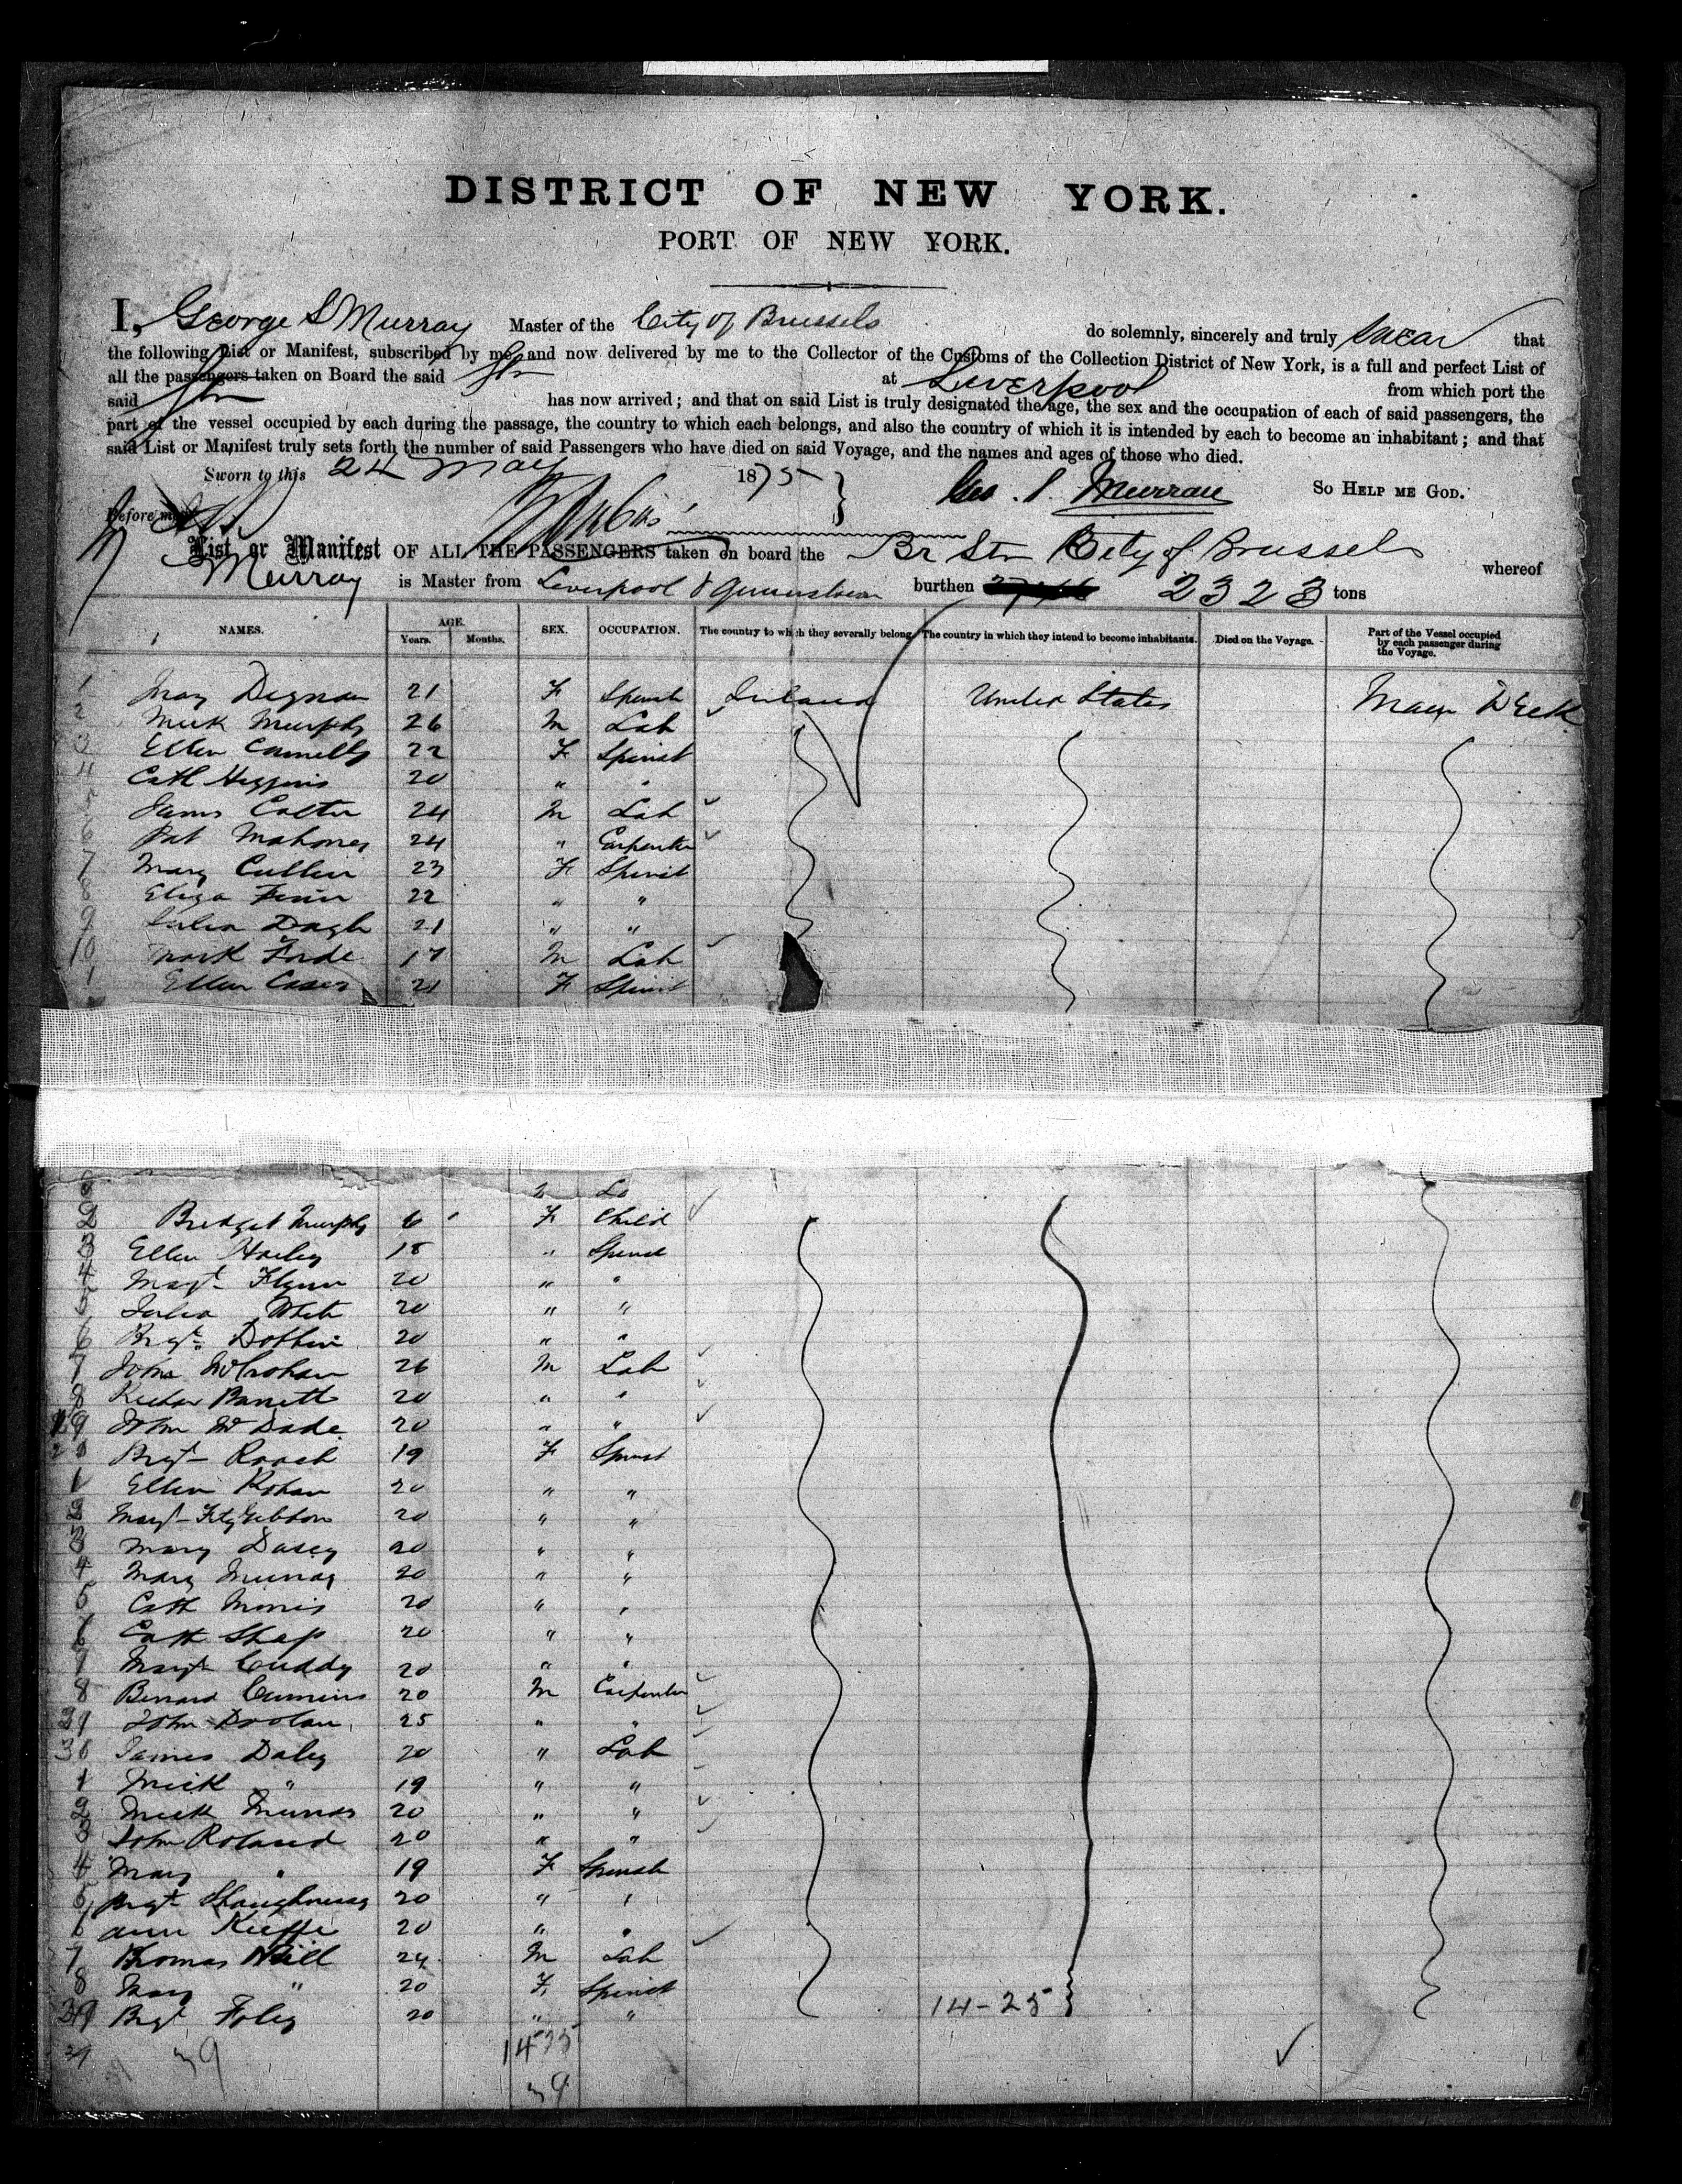 DISTRICT OF NEW YORK.
PORT OF NEW YORK.
I, George S Murray Master of the City of Brussels do solemnly, sincerely and truly swear that
the following List or Manifest, subscribed by me, and now delivered by me to the Collector of the Customs of the Collection District of New York, is a full and perfect List of
all the passengers taken on Board the said Str at Liverpool from which port the
said Str has now arrived; and that on said List is truly designated the age, the sex and the occupation of each of said passengers, the
part of the vessel occupied by each during the passage, the country to which each belongs, and also the country of which it is intended by each to become an inhabitant; and that
said List or Manifest truly sets forth the number of said Passengers who have died on said Voyage, and the names and ages of those who died.
Sworn to this 24 May 1875 Geo. S. Murray So Help me God.
Before me
List or Manifest OF ALL THE PASSENGERS taken on board the Br Str City of Brussels whereof
Murray is Master from Liverpool & Queenstown burthen 2323 tons
NAMES. AGE. Years. Months. SEX. OCCUPATION. The country to which they severally belong. The country in which they intend to become inhabitants. Died on the Voyage. Part of the Vessel occupied by each passenger during the Voyage.
1 May Dignan 21 F Spinst Ireland United States Main Deck
2 Mick Murphy 26 M Lab
3 Ellen Connelly 22 F Spinst
4 Cath Higgins 20 " "
5 James Colter 24 M Lab
6 Pat Mahoney 24 " Carpenter
7 Mary Cullin 23 F Spinst
8 Eliza Finn 22 " "
9 Julia 21 " "
10 Mark Forde 17 M Lab
1 Ellen Casey 21 F Spinst
2 Bridget Murphy 6 F Child
3 Ellen Harley 18 " Spinst
4 Magt Flynn 20 " "
5 Julia White 20 " "
6 Brgt Dobbin 20 " "
7 John McCrohan 26 M Lab
8 Barrett 20 " "
19 John McDade 20 " "
20 Brgt Roach 19 F Spinst
1 Ellen Rohan 20 " "
2 Magt FitzGibbon 20 " "
3 Mary Dasey 20 " "
4 Mary Murray 20 " "
5 Cath Morris 20 " "
6 Cath 20 " "
7 Magt Cuddy 20 " "
8 Bernard Cumins 20 M Carpenter
29 John Doolan 25 " "
30 James Daley 20 " Lab
1 Mick " 19 " "
2 Mick 20 " "
3 John Roland 20 " "
4 Mary " 19 F Spinst
5 Brgt Shaughnessy 20 " "
6 Ann Kieffe 20 " "
7 Thomas Neill 24 M Lab
8 Mary " 20 F Spinst
39 Brgt Foley 20 " " 14-25
39 1425
39